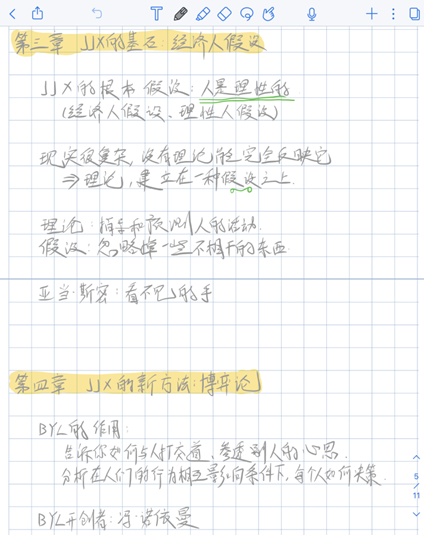 第三章 JJX的基石:经济人假设
JJX的根本假设:人是理性的
(经济人假设、理性人假设)
现实很复杂,没有理论能完全反映它
⇒理论,建立在一种假设之上.
理论:指导和预测人的活动.
假设:忽略掉一些不相干的东西
亚当·斯密:看不见的手
第四章 JJX的新方法:博弈论
BYL的作用:
告诉你如何与人打交道,参透别人的心思.
分析在人们的行为相互影响条件下,每个人如何决策.
BYL开创者:冯·诺依曼
5
11